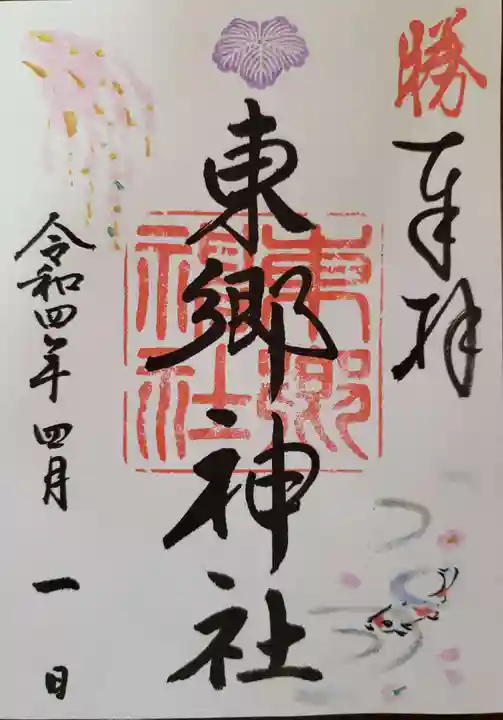 勝
奉拝
東郷神社
東郷神社
令和四年四月一日